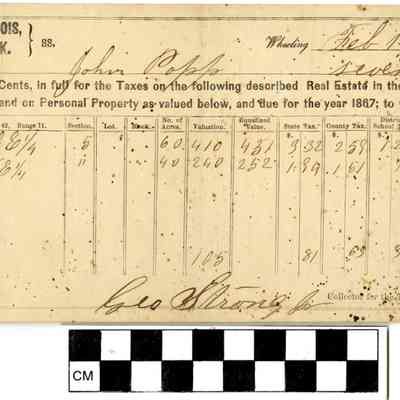 OIS,
K. } ss. Wheeling Feb 1
John Popp seven
Cents, in full for the Taxes on the following described Real Estate in the
and on Personal Property as valued below, and due for the year 1867; to
42, Range 11. Section. Lot. Block. No. of Acres. Valuation. Equalized Value. State Tax. County Tax. Distri School
E 1/4 5 60 410 431 3 32 2 58
E 1/4 " 40 240 252 1 89 1 51
105 81 63
Geo Strong Jr Collector for the
CM